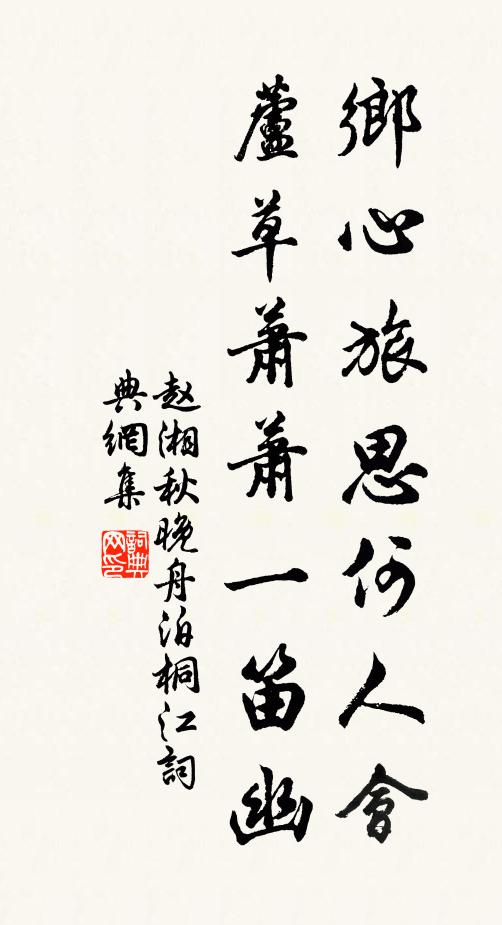 鄉心旅思何人會
蘆草蕭蕭一笛幽
赵湘秋晚舟泊桐江詞
典網集
詞典
网印